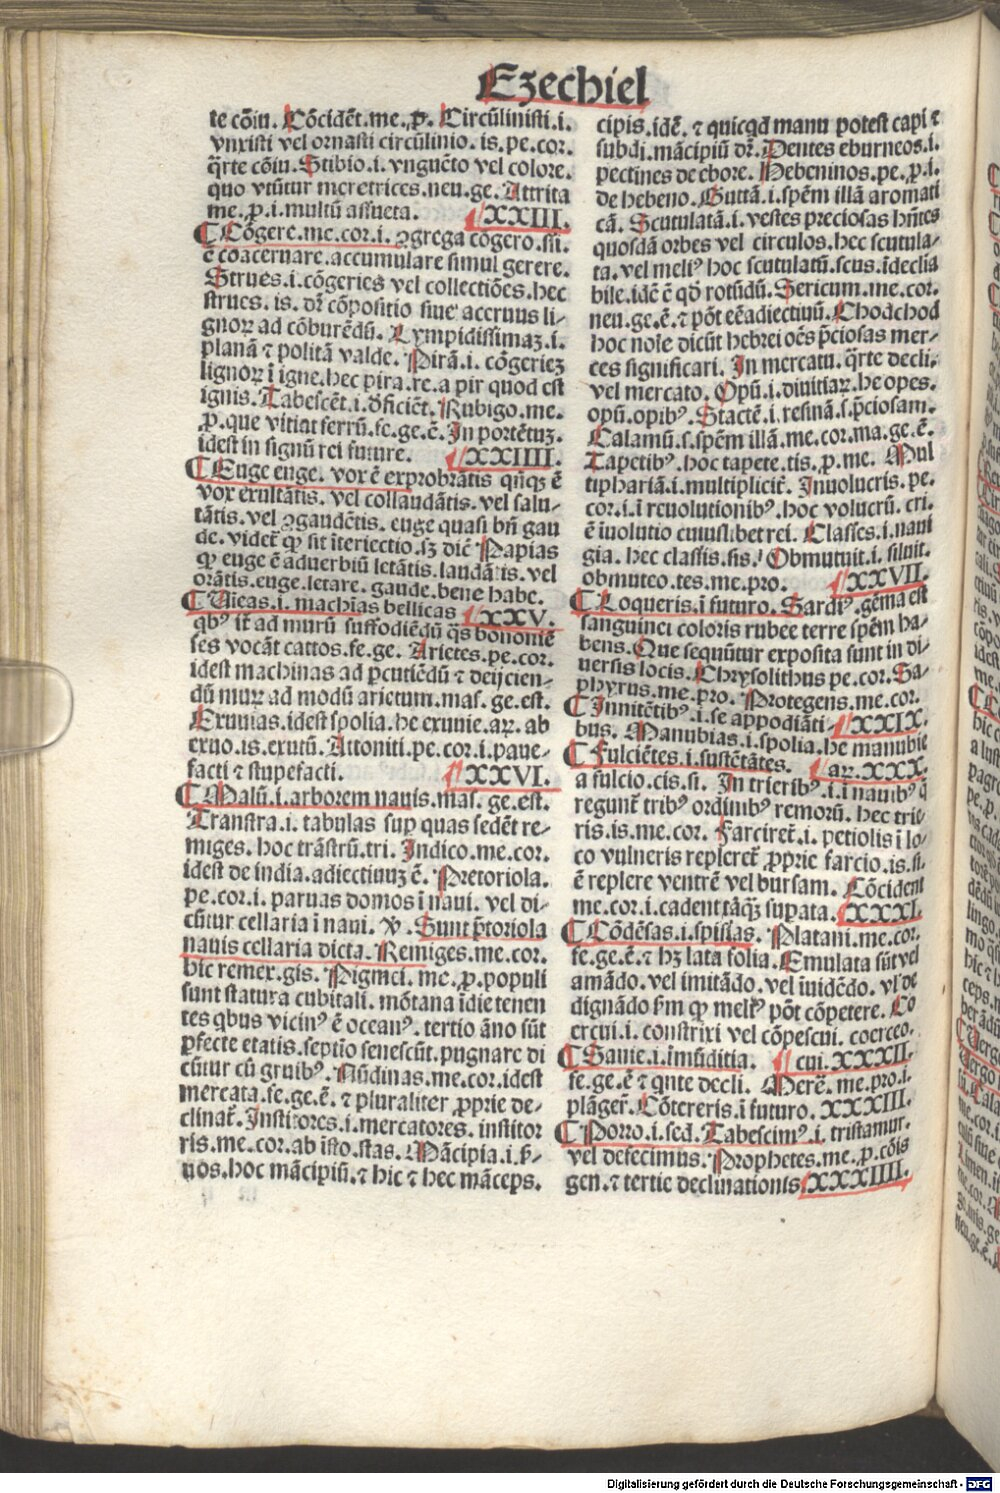 Ezechiel
te cōiu. Cōcidēt.me.p̄. Circūlinisti.i.
vnxisti vel ornasti circūlinio.is.pe.cor.
q̄rte cōiu. Stibio.i.vnguēto vel colore.
quo vtūtur meretrices.neu.ge. Attrita
me.p̄.i.multū assueta. XXIII.
Cōgere.me.cor.i.ꝯgrega cōgero.sū.
ē coaceruare.accumulare simul gerere.
Strues.i.cōgeries vel collectiōes.hec
strues.is.dr̄ cōpositio siue aceruus li-
gnoꝝ ad cōburēdū. Lympidissimaꝫ.i.
planā ⁊ politā valde. Pirā.i. cōgerieꝫ
lignoꝝ ī igne.hec pira.re.a pir quod est
ignis. Tabescēt.i.deficiēt. Rubigo.me.
p̄.que vitiat ferrū.fe.ge.ē. In portētuꝫ.
idest in signū rei future. XXIIII.
Euge euge. vox ē exprobrātis qn̄qꝫ ē
vox exultātis. vel collaudātis. vel salu-
tātis.vel ꝯgaudētis. euge quasi bn̄ gau
de. videt᷑ ꝙ sit īteriectio.sꝫ dic̄ Papias
ꝙ euge ē aduerbiū letātis.laudātis.vel
orātis.euge.letare. gaude.bene habe.
Vieas.i. machias bellicas XXV.
qbꝰ it᷑ ad murū suffodiēdū q̄s bononie
ses vocāt cattos.fe.ge. Arietes.pe.cor.
idest machinas ad ꝑcutiēdū ⁊ deijcien-
dū muꝝ ad modū arietum.mas. ge.est.
Exuuias.idest spolia.he exuuie.aꝝ. ab
exuo.is.exutū. Attoniti.pe.cor.i.paue-
facti ⁊ stupefacti. XXVI.
Malū.i.arborem nauis.mas. ge.est.
Transtra.i. tabulas sup quas sedēt re-
miges. hoc trāstrū.tri. Indico.me.cor.
idest de india.adiectiuuꝫ ē. Pretoriola.
pe.cor.i. paruas domos ī naui. vel di-
cūtur cellaria ī naui. ꝟ. Sunt p̄toriola
nauis cellaria dicta. Remiges.me.cor.
hic remex.gis. Pigmei. me. p̄.populi
sunt statura cubitali. mōtana īdie tenen
tes qbus vicinꝰ ē oceanꝰ. tertio āno sūt
ꝑfecte etatis.septio senescūt.pugnare di
cūtur cū gruibꝰ. Nūdinas.me.cor.idest
mercata.fe.ge.ē. ⁊ pluraliter ꝓprie de-
clinat᷑. Institores.i.mercatores. institor
ris.me.cor.ab īsto.stas. Mācipia.i.ẜ-
uos.hoc mācipiū.⁊ hic ⁊ hec māceps.
cipis.idē. ⁊ quicqd manu potest capi ⁊
subdi.mācipiū dr̄. Dentes eburneos.i.
pectines de ebore. Hebeninos.pe.p̄.i.
de hebeno. Guttā.i.spēm illā aromati
cā. Scutulatā.i. vestes preciosas hn̄tes
quosdā orbes vel circulos.hec scutula-
ta.vel meliꝰ hoc scutulatū.scus.īdeclia
bile.idē ē qd̄ rotūdū. Sericum.me.cor.
neu.ge.ē.⁊ pōt eē adiectiuū. Chodchod
hoc noīe dicūt hebrei oēs p̄ciosas mer-
ces significari. In mercatu. q̄rte decli.
vel mercato. Opū.i.diuitiaꝝ.he opes.
opū.opibꝰ. Stactē.i.resinā.s.p̄ciosam.
Calamū.s.spēm illā.me.cor.ma.ge.ē.
Tapetibꝰ.hoc tapete.tis.p̄.me. Mul
tiphariā.i.multiplicit᷑. Inuolucris.pe.
cor.i.ī reuolutionibꝰ.hoc volucrū. cri.
ē iuolutio cuiuslibet rei. Classes.i.naui
gia. hec classis.sis. Obmutuit.i. siluit.
obmuteo.tes.me.pro. XXVII.
Loqueris.ī futuro. Sardiꝰ.gēma est
sanguinei coloris rubee terre spēm ha-
bens. Que sequūtur exposita sunt in di
uersis locis. Chrysolithus pe.cor. Sa-
phyrus.me.pro. Protegens.me.cor.
Innitētibꝰ.i.se appodiāti- XXIX.
bus. Manubias.i.spolia.he manubie
Fulciētes.i.sustētātes. aꝝ.XXX.
a fulcio.cis.si. In trieribꝰ.i.ī nauibꝰ q̄
regunt᷑ tribꝰ ordinibꝰ remorū. hec trie
ris.is.me.cor. Farciret᷑.i. petiolis ī lo-
co vulneris repleret᷑ ꝓprie farcio.is.si.
ē replere ventrē vel bursam. Cōcident
me.cor.i.cadent tāqꝫ supata. XXXI.
Cōdēsas.i.spissas. Platani.me.cor.
fe.ge.ē.⁊ hꝫ lata folia. Emulata sūt vel
amādo.vel imitādo. vel īuidēdo. vl̓ de
dignādo ẜm ꝙ melꝰ pōt cōpetere. Co
ercui.i. constrixi vel cōpescui. coerceo.
Sanie.i.īmūditia. cui.XXXII.
fe.ge.ē ⁊ qnte decli. Merē.me.pro.i.
plāger̄. Cōtereris.ī futuro. XXXIII.
Porro.i.sed. Tabescimꝰ.i. tristamur.
vel defecimus. Prophetes.me.p̄.cōis
gen.⁊ tertie declinationis. XXXIIII.
Digitalisierung gefördert durch die Deutsche Forschungsgemeinschaft - DFG